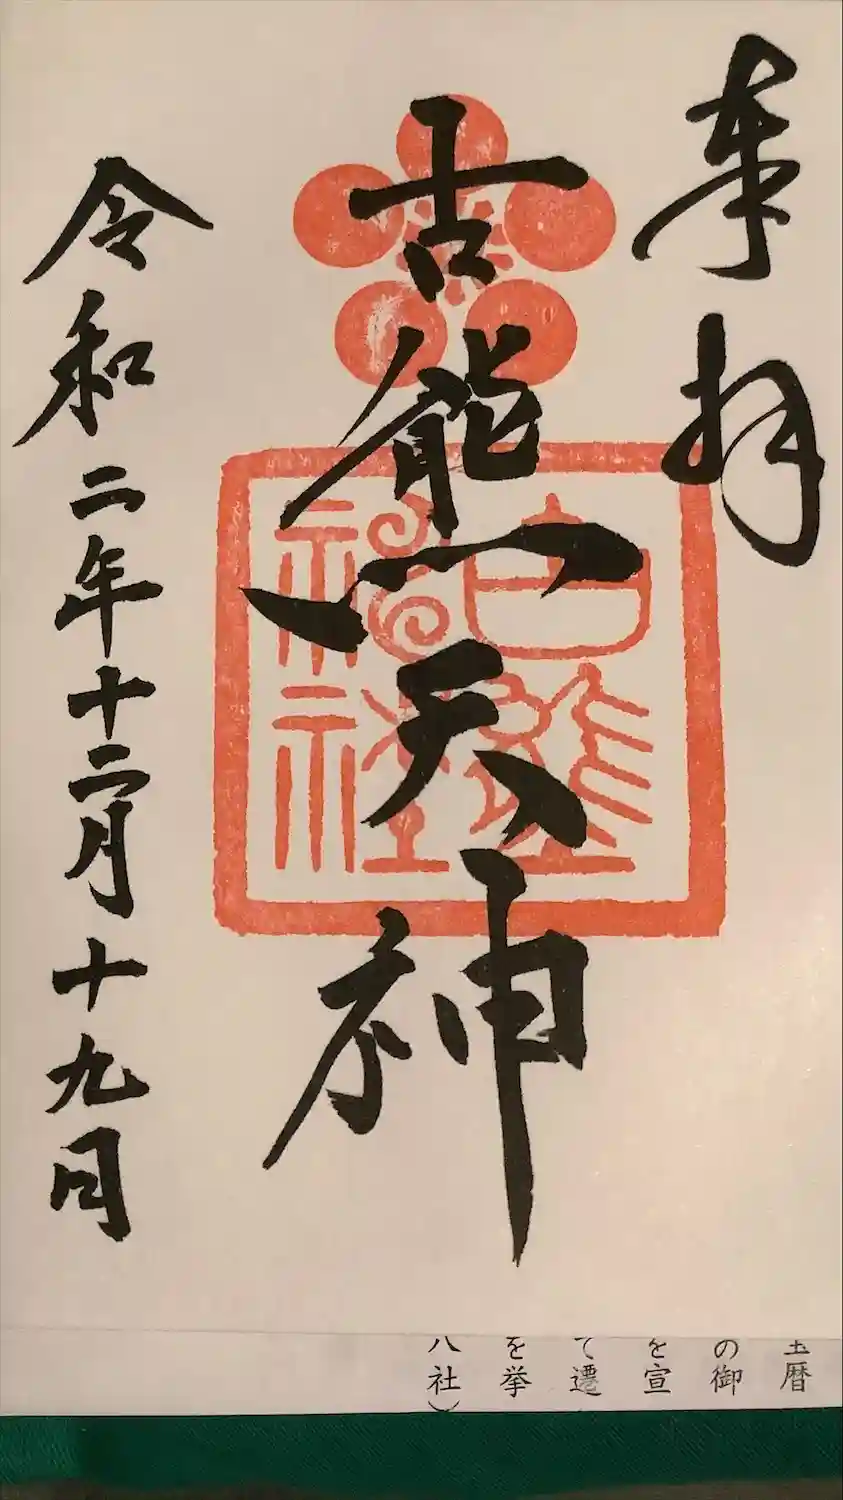 奉拝
古熊天神
古熊
神社
令和二年十二月十九日
暦
の御
を宣
て遷
を挙
八社）